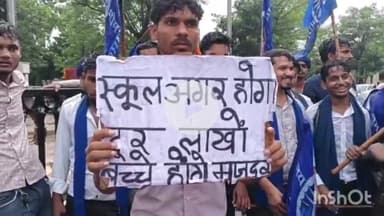 स्कूल अगर होगा
दूर लाखों
बच्चे होंगे मजदूर
InShOt